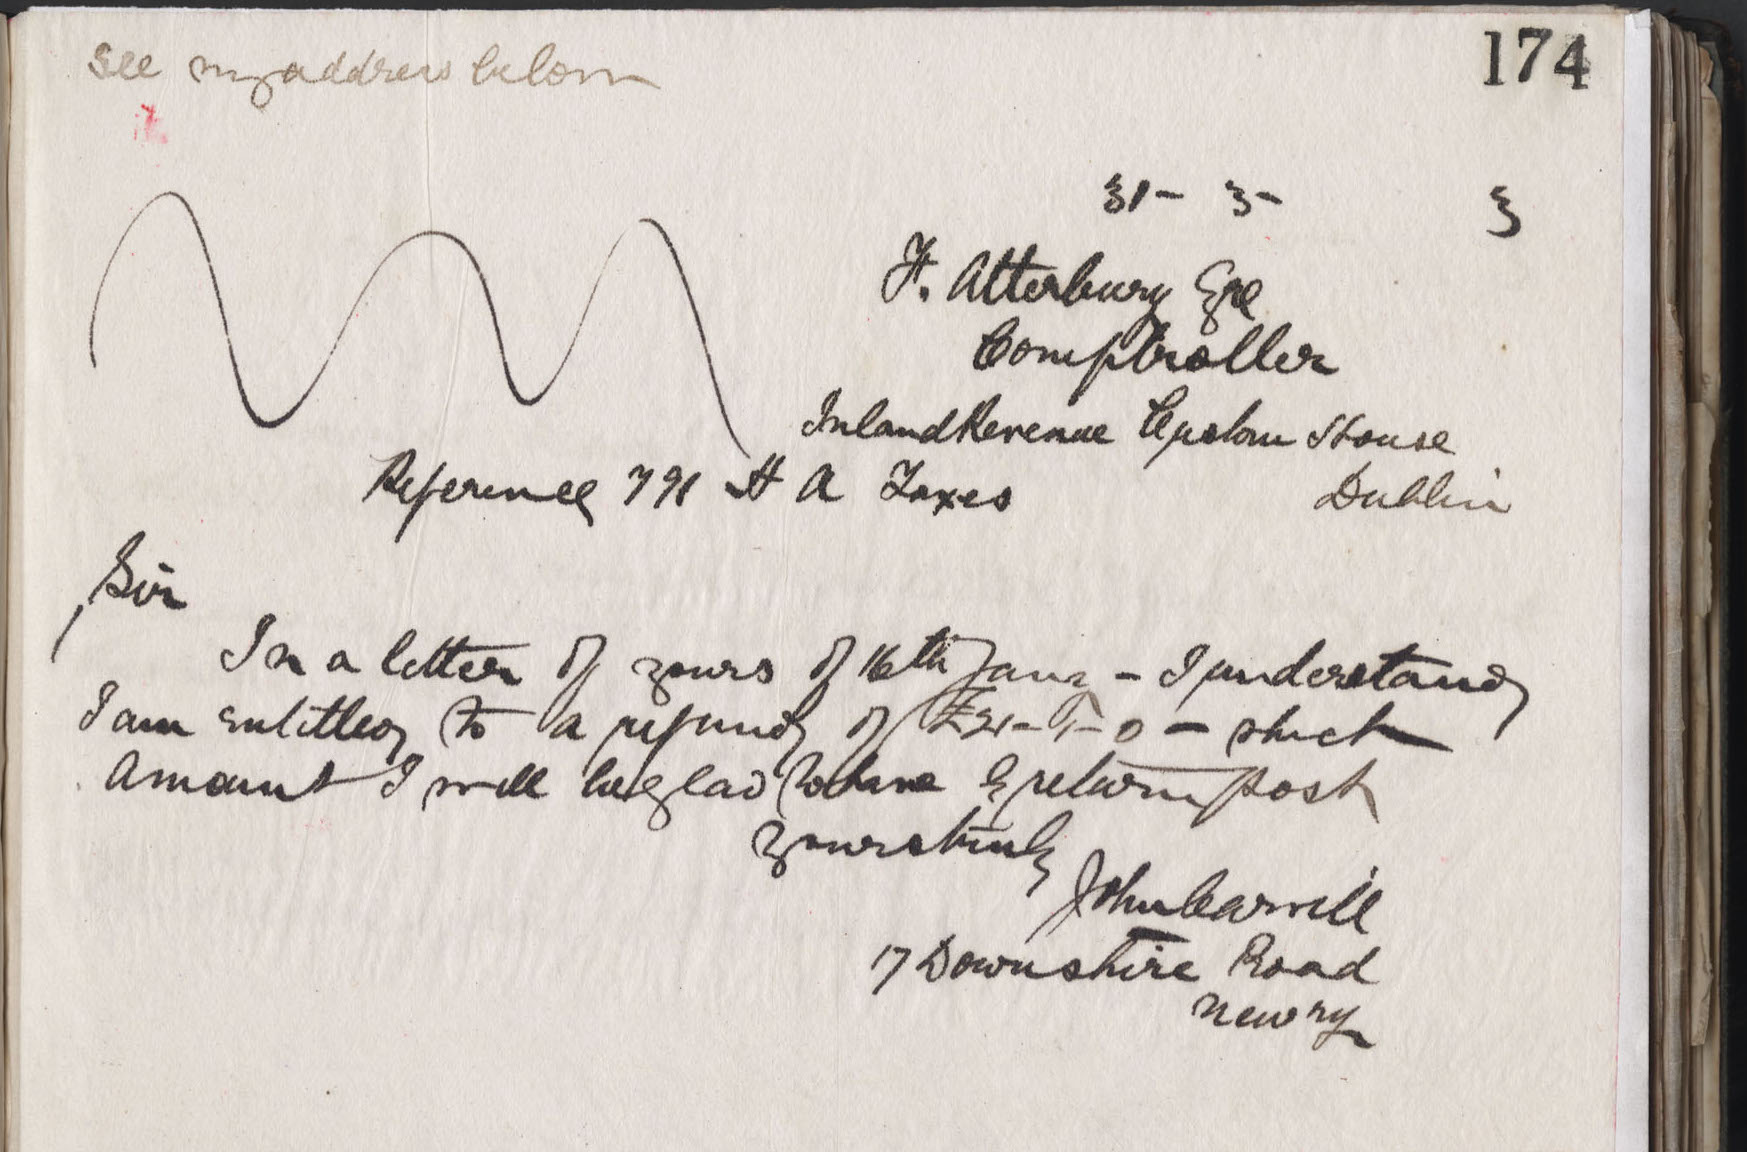 174
see my address below
31- 3- 3
F. Atterbury Esq
Comptroller
Inland Revenue Custom House
Dublin
Reference 791 H A Taxes
Sir
In a letter of yours of 16th Jany - I understand
I am entitled to a refund of - which
Amount I will be glad to have by return post
Yours truly
John Carvill
17 Downshire Road
Newry